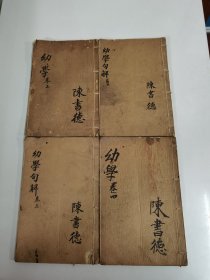 幼學卷二
陳書德
幼學句解
陳書德
幼學句解卷三
陳書德
幼學卷四
陳書德